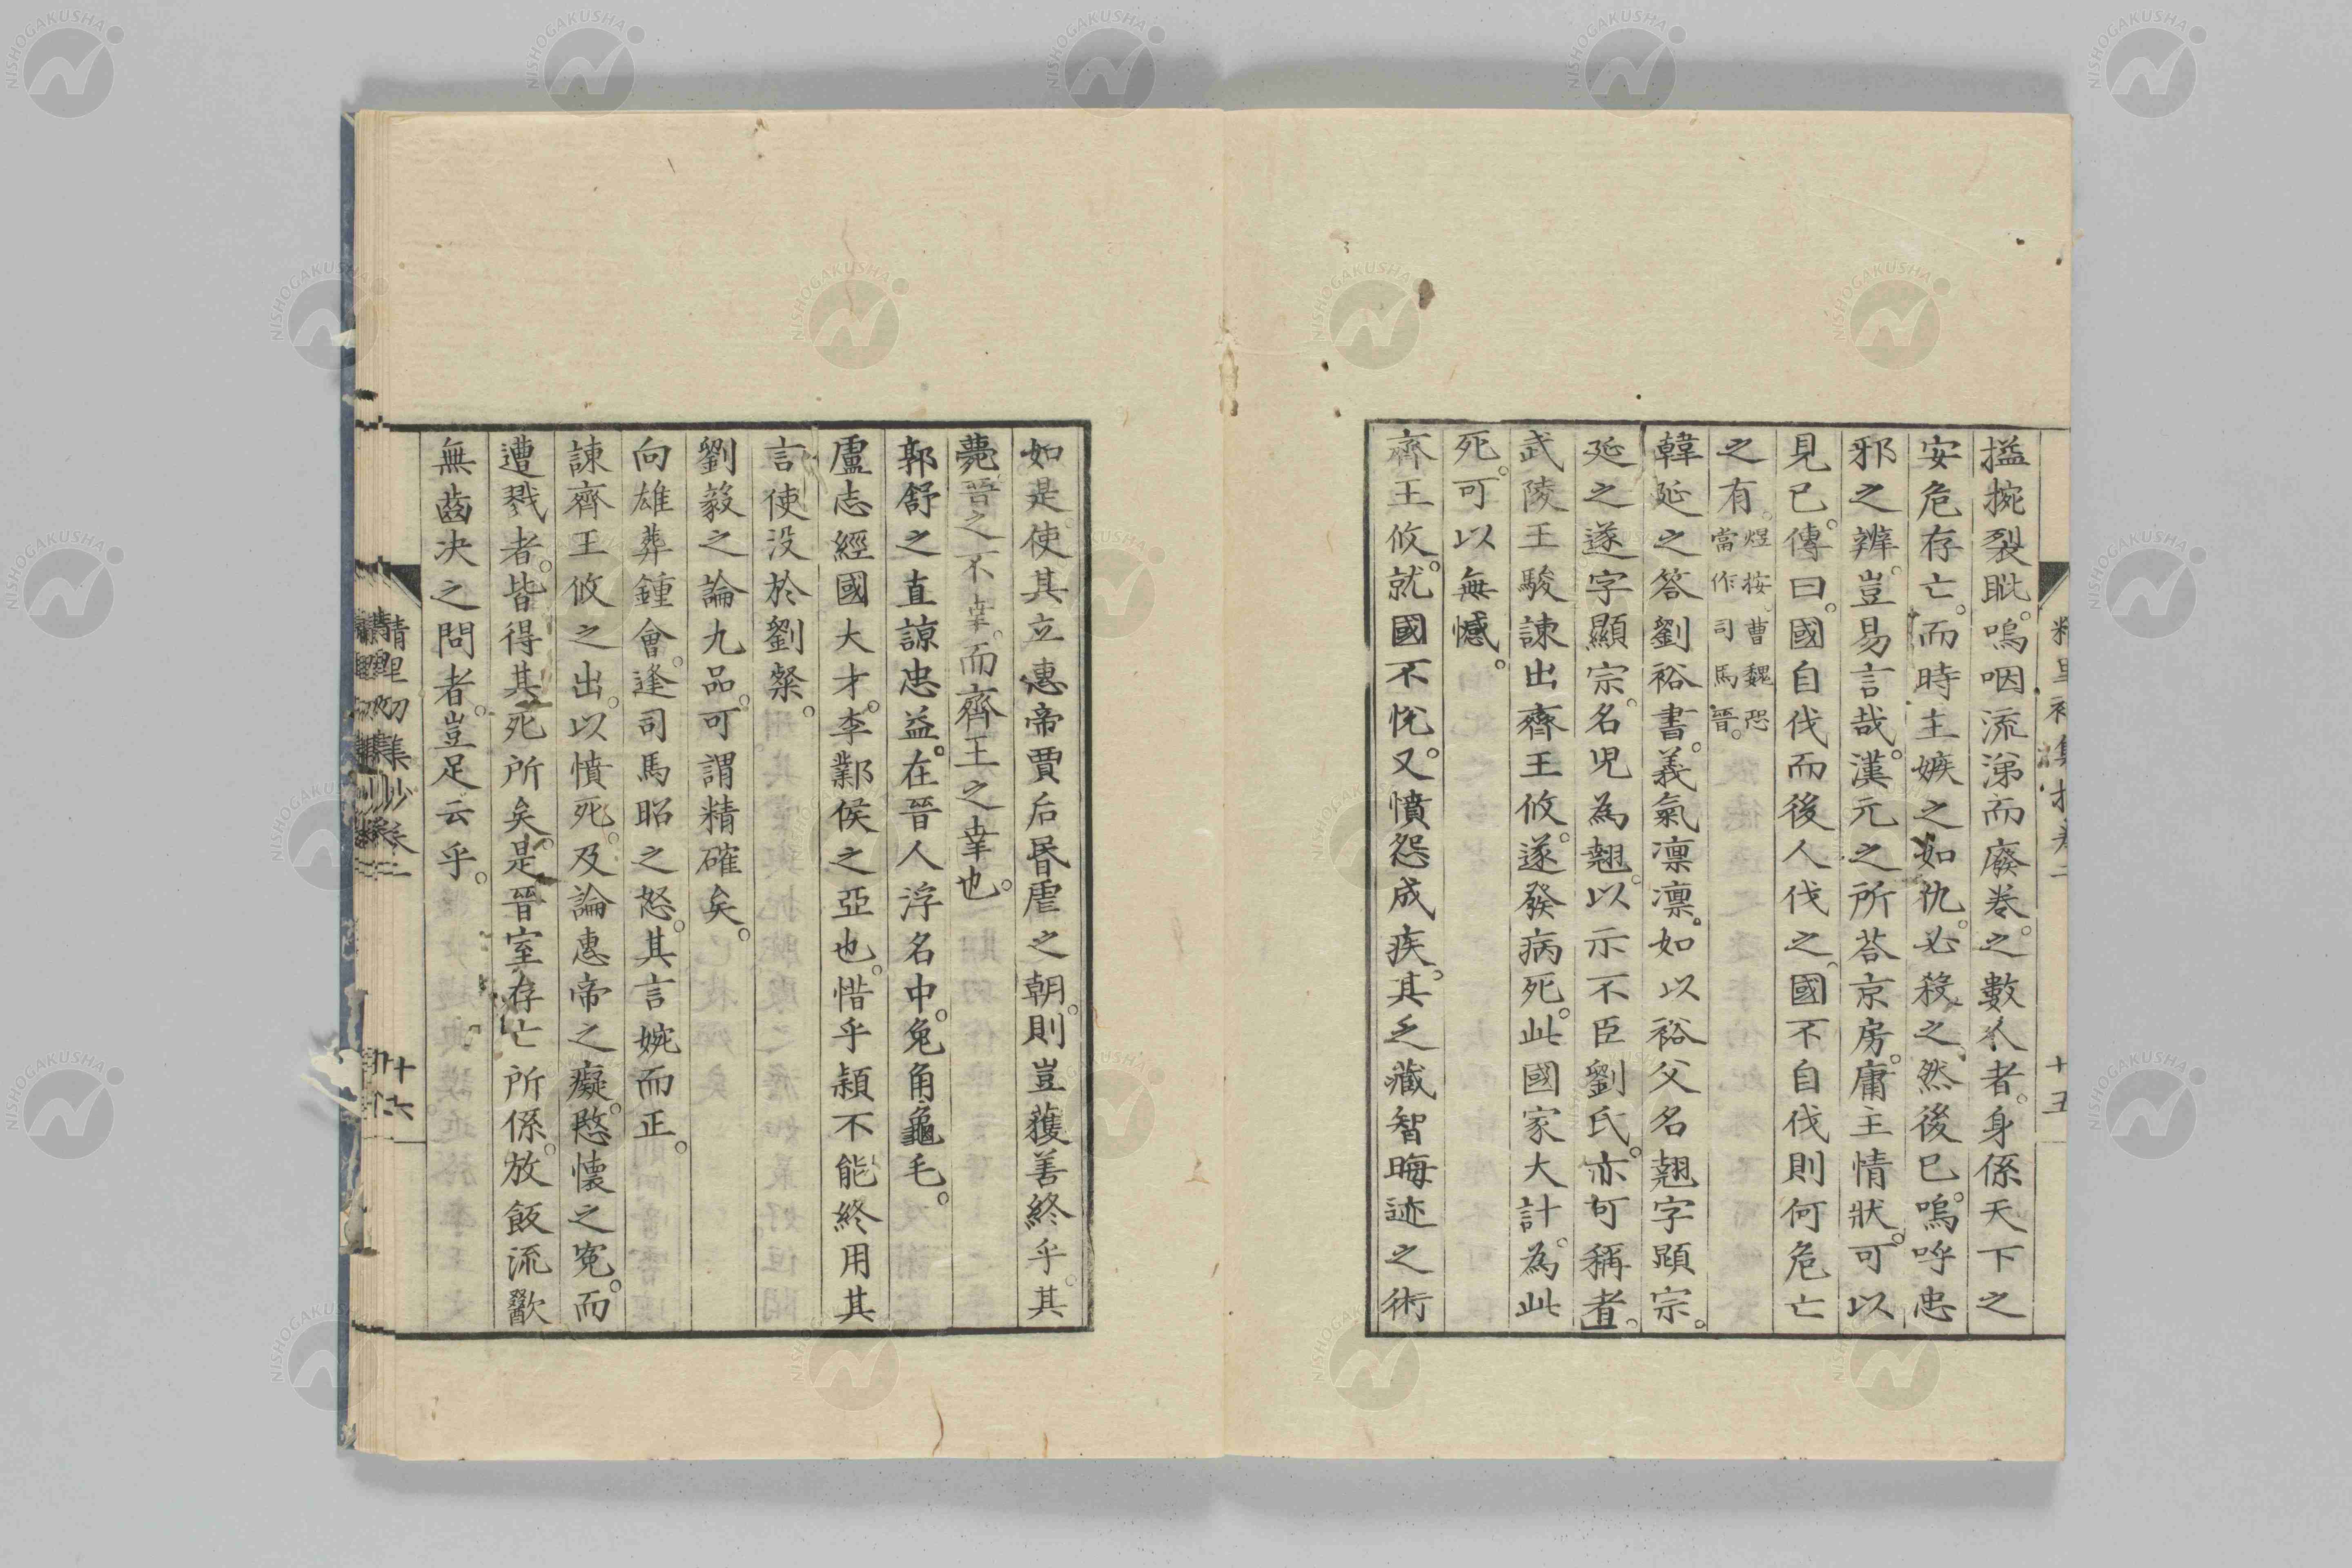 搤捥裂眦。嗚咽流涕而廢卷。之數人者。身係天下之
安危存亡。而時主嫉之如仇。必殺之然後已。嗚呼忠
邪之辨。豈易言哉。漢元之所荅京房。庸主情狀。可以
見已。傳曰。國自伐而後人伐之。國不自伐則何危亡
之有。煜按。曹魏恐
當作司馬晉。
韓延之答劉裕書。義氣凛凛。如以裕父名翹字顕宗。
延之遂字顯宗。名児為翹。以示不臣劉氏。亦可稱者。
武陵王駿諫出齊王攸。遂發病死。此國家大計。為此
死。可以無憾。
齊王攸。就國不悅。又憤怨成疾。其乏藏智晦迹之術
十五
如是。使其立惠帝賈后昬虐之朝。則豈獲善終乎。其
薨晉之不幸。而齊王之幸也。
郭舒之直諒忠益。在晉人浮名中。兔角龜毛。
盧志經國大才。李鄴侯之亞也。惜乎穎不能終用其
言使没於劉粲。
劉毅之論九品。可謂精確矣。
向雄葬鍾會。逢司馬昭之怒。其言婉而正。
諫齊王攸之出。以憤死。及論惠帝之癡。愍懷之寃。而
遭戮者。皆得其死所矣。是晉室存亡所係。放飯流歠
無齒决之問者。豈足云乎。
精里初集抄卷二
十六
NISHOGAKUSHA